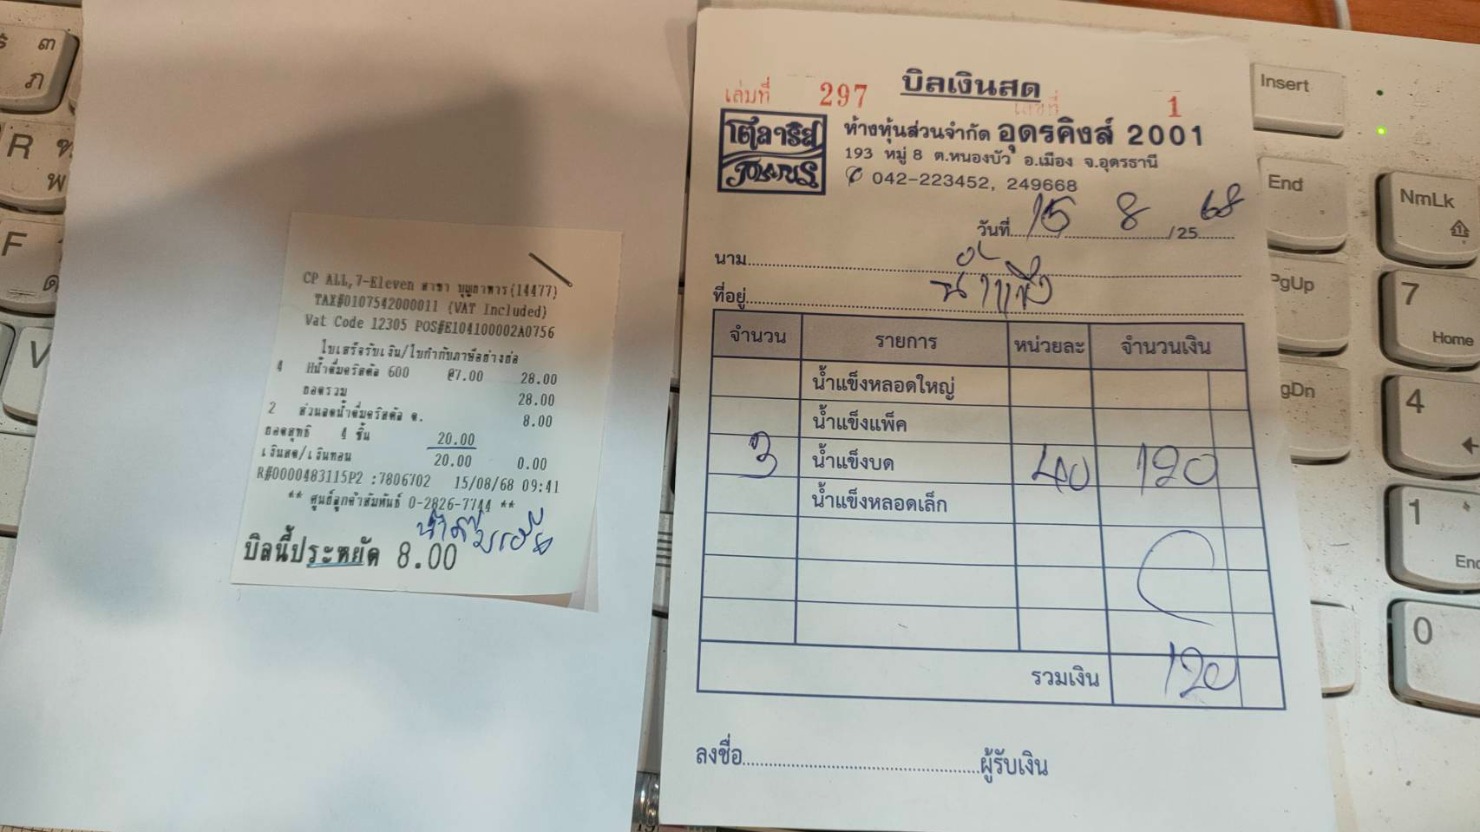 CP ALL,7-Eleven สาขา บุญถาวร(14477)
TAX#0107542000011 (VAT Included)
Vat Code 12305 POS#E104100002A0756
ใบเสร็จรับเงิน/ใบกำกับภาษีอย่างย่อ
4 Hน้ำดื่มคริสตัล 600 @7.00 28.00
ยอดรวม 28.00
2 ส่วนลดน้ำดื่มคริสตัล ข. 8.00
ยอดสุทธิ 4 ชิ้น 20.00
เงินสด/เงินทอน 20.00 0.00
R#0000483115P2 :7806702 15/08/68 09:41
** ศูนย์ลูกค้าสัมพันธ์ 0-2826-7744 **
บิลนี้ประหยัด 8.00
บิลเงินสด
เล่มที่ 297 เลขที่ 1
โตลาริส
ห้างหุ้นส่วนจำกัด อุดรคิงส์ 2001
193 หมู่ 8 ต.หนองบัว อ.เมือง จ.อุดรธานี
042-223452, 249668
วันที่ 15 8 /25 68
นาม
น้ำแข็ง
ที่อยู่
จำนวน รายการ หน่วยละ จำนวนเงิน
น้ำแข็งหลอดใหญ่
น้ำแข็งแพ็ค
3 น้ำแข็งบด 40 120
น้ำแข็งหลอดเล็ก
รวมเงิน 120
ลงชื่อ ผู้รับเงิน
Insert
End
PgUp
PgDn
NmLk
7
Home
4
1
End
0
ภ
R
พ
F
V